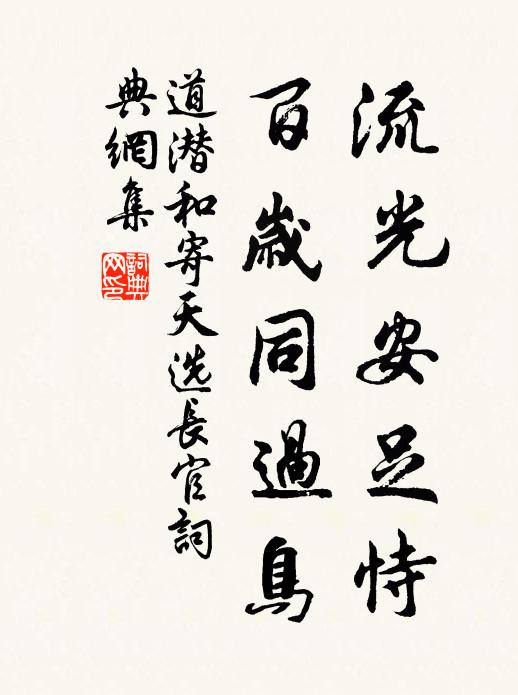 流光安足恃
百歲同過鳥
道潜和寄天选長官詞
典網集
詞典网印